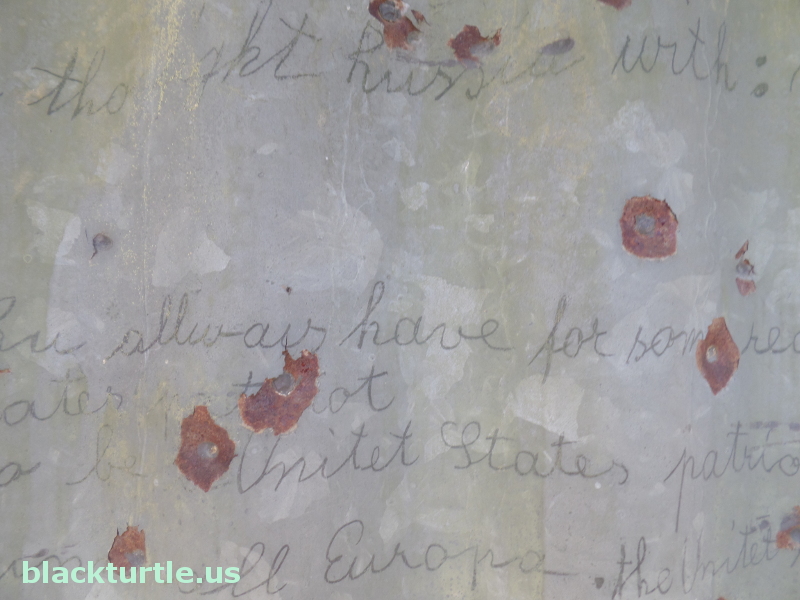 russia with:
allways have for som
ates patriot
be Unitet States patrio
all Europa . the Unitet
blackturtle.us